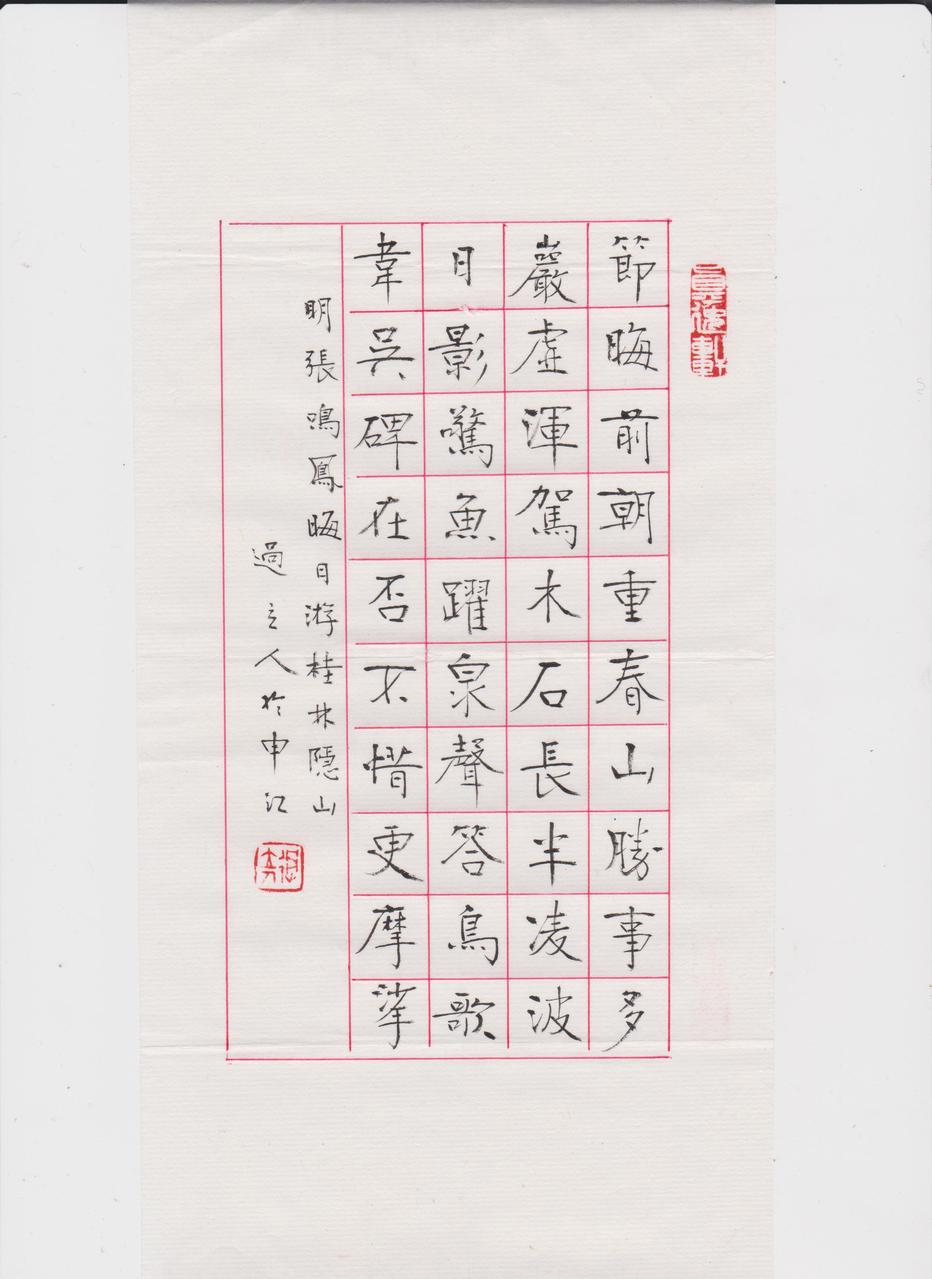 節晦前朝重春山勝事多
巖虛渾駕木石長半凌波
日影驚魚躍泉聲答鳥歌
韋吳碑在否不惜更摩挲
明張鳴鳳晦日游桂林隱山
過之人於申江